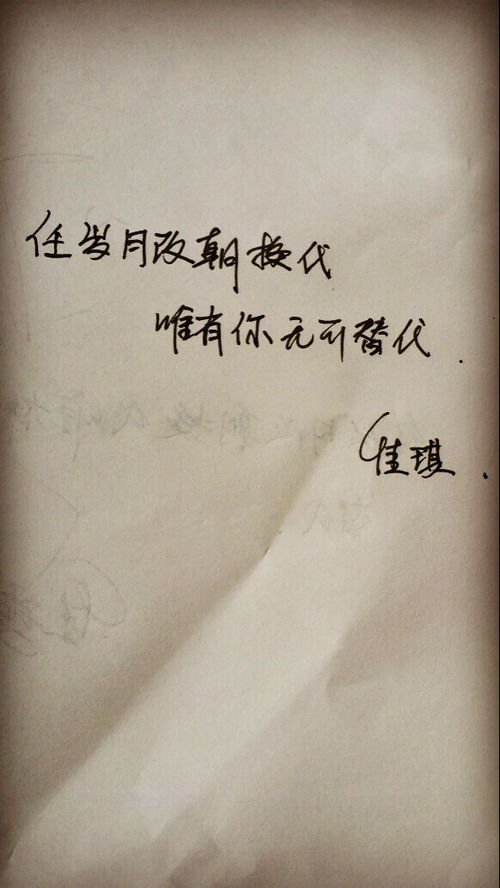 任岁月改朝换代
唯有你无可替代.
佳琪.